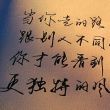 当你走的路
跟别人不同
你才能看到
更独特的风